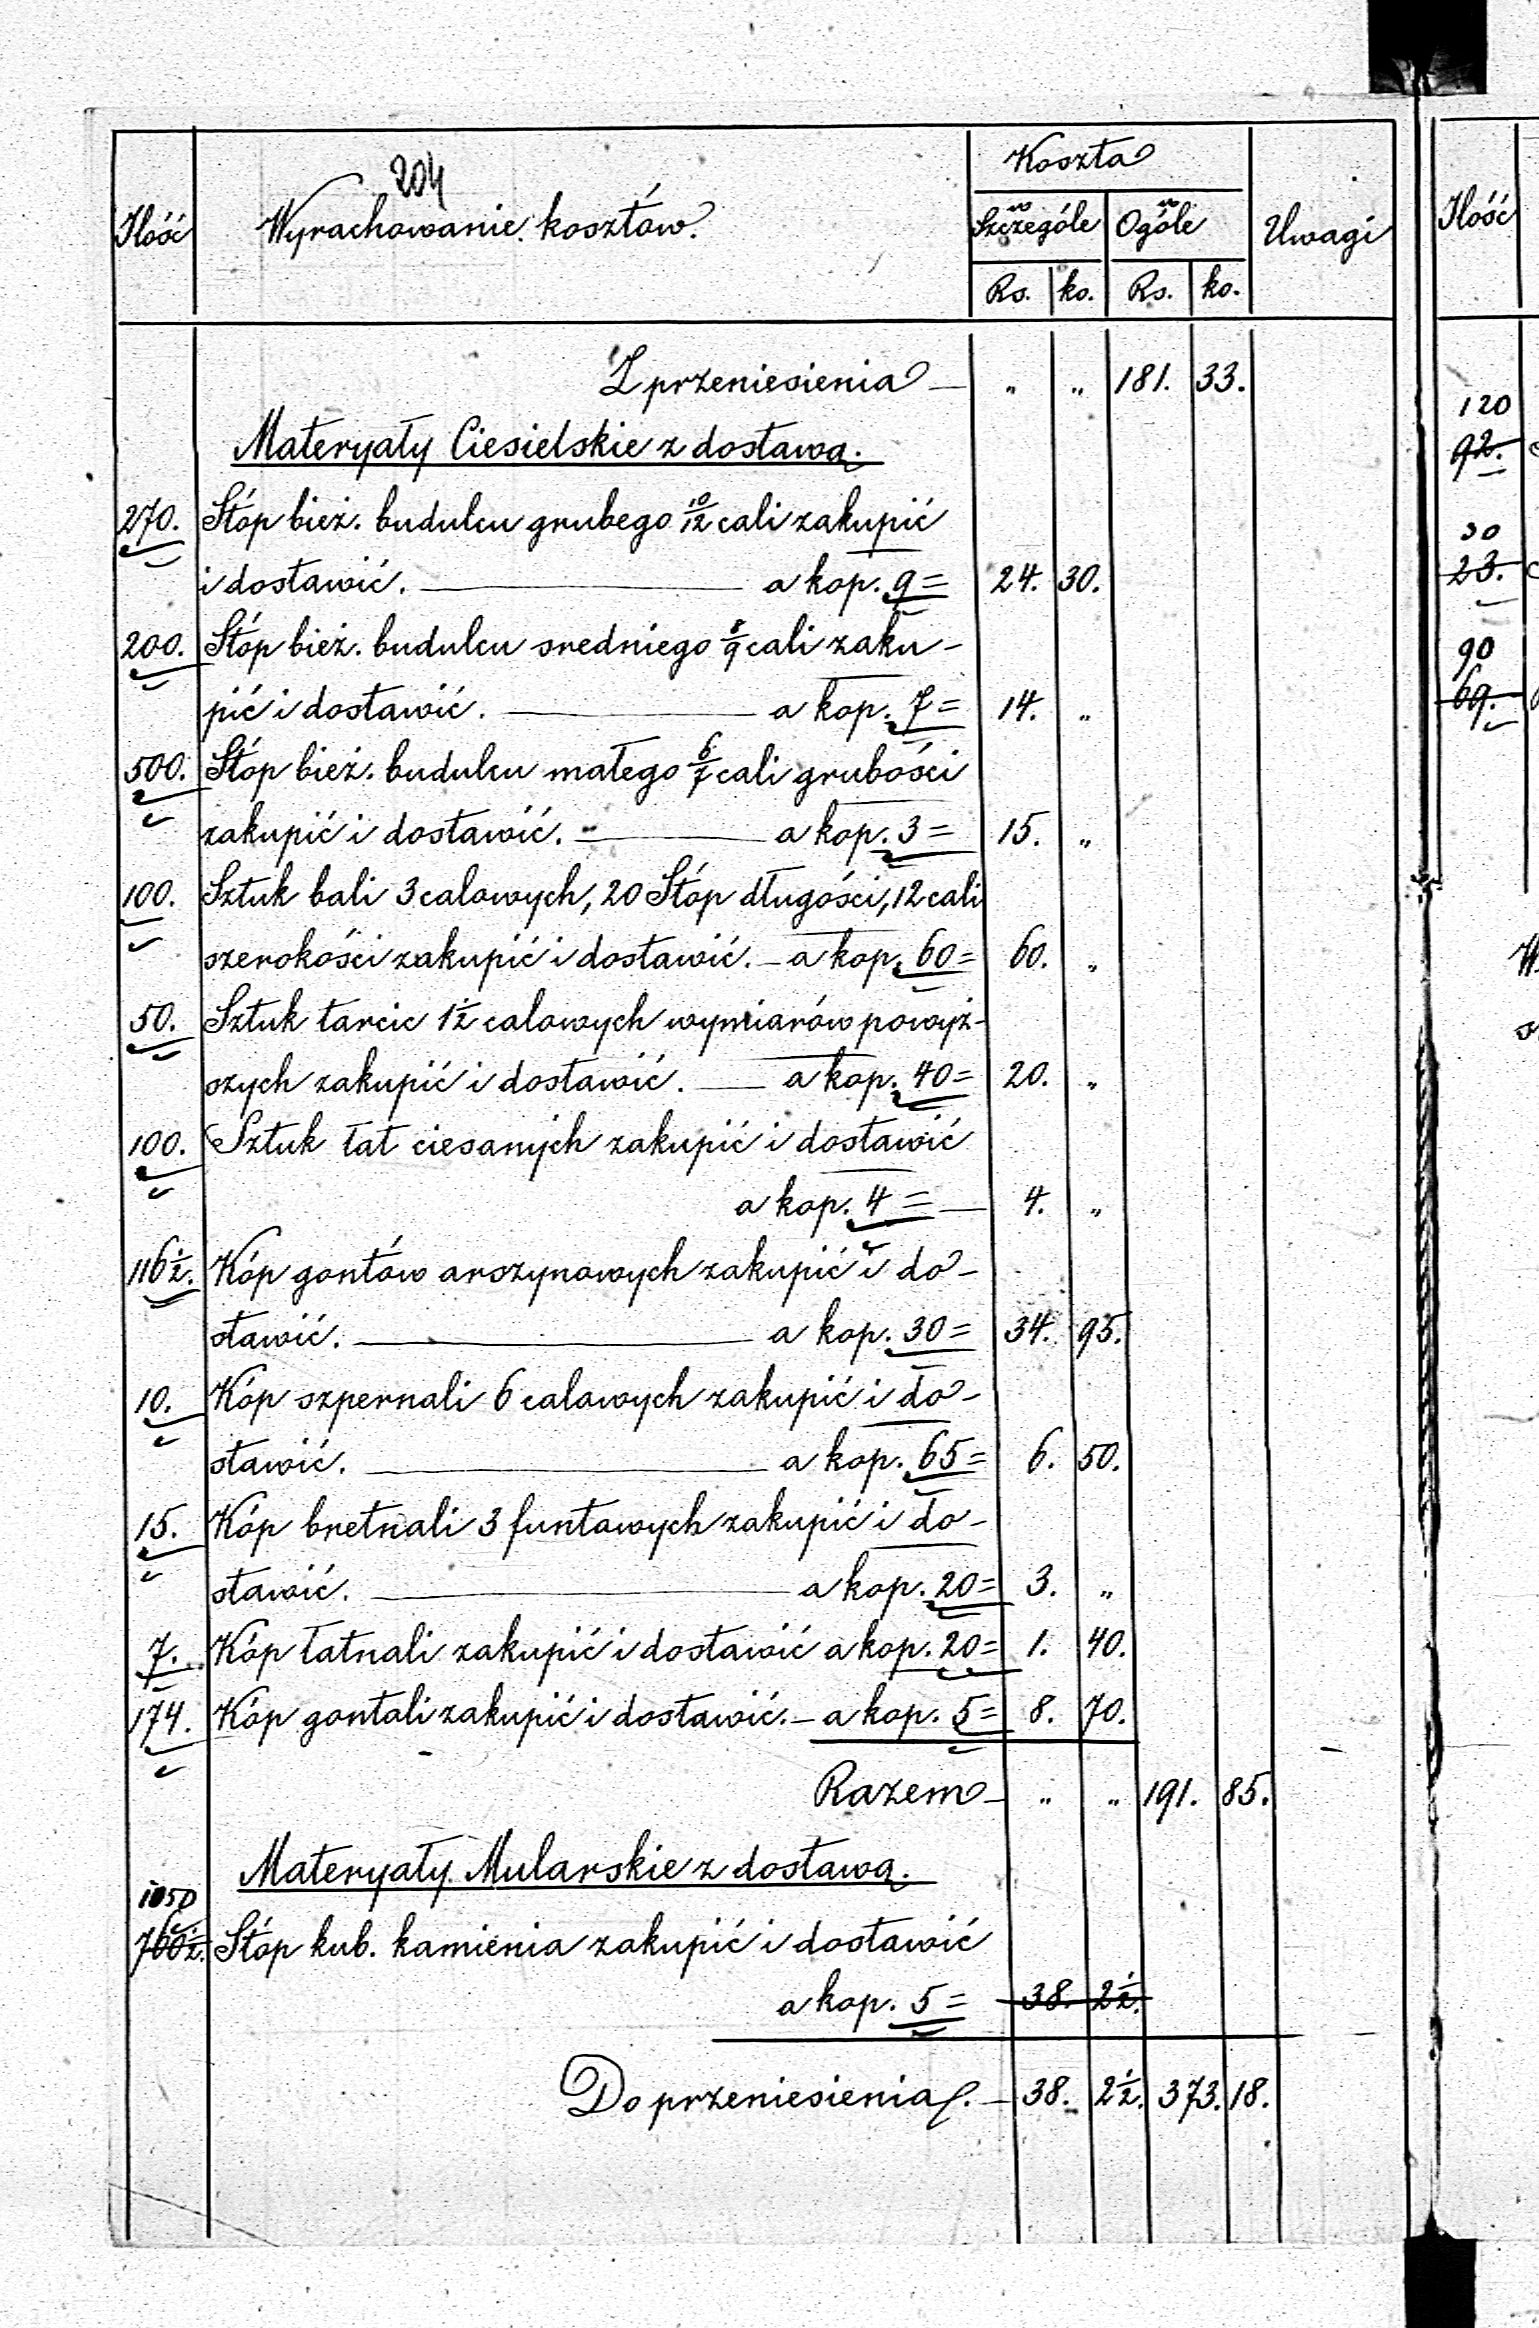 204
Koszta
Ilość Wyrachowanie kosztów. w Szczególe w Ogóle Uwagi
Rs. ko. Rs. ko.
Z przeniesienia — " " 181. 33.
Materyały Ciesielskie z dostawą.
270. Stóp bież. budulcu grubego 10/12 cali zakupić
i dostawić. — a kop. 9= 24. 30.
200. Stóp bież. budulcu sredniego 8/9 cali zaku-
pić i dostawić. — a kop. 7= 14. "
500. Stóp bież. budulcu małego 6/7 cali grubości
zakupić i dostawić. — a kop. 3= 15. "
100. Sztuk bali 3 calowych, 20 Stóp długości, 12 cali
szerokości zakupić i dostawić. — a kop. 60= 60. "
50. Sztuk tarcic 1½ calowych wymiarów powyż-
szych zakupić i dostawić. — a kop. 40= 20. "
100. Sztuk łat ciesanych zakupić i dostawić
a kop. 4= — 4. "
116½. Kóp gontów arszynowych zakupić i do-
stawić. — a kop. 30= 34. 95.
10. Kóp szpernali 6 calowych zakupić i do-
stawić. — a kop. 65= 6. 50.
15. Kóp bretnali 3 funtowych zakupić i do-
stawić. — a kop. 20= 3. "
7. Kóp łatnali zakupić i dostawić a kop. 20= 1. 40.
174. Kóp gontali zakupić i dostawić. — a kop. 5= 8. 70.
Razem — " " 191. 85.
Materyały Mularskie z dostawą.
1050
760½. Stóp kub. kamienia zakupić i dostawić
a kop. 5= 38. 2½.
Do przeniesienia. — 38. 2½. 373. 18.
Ilość
120
92.
30
23.
90
69.